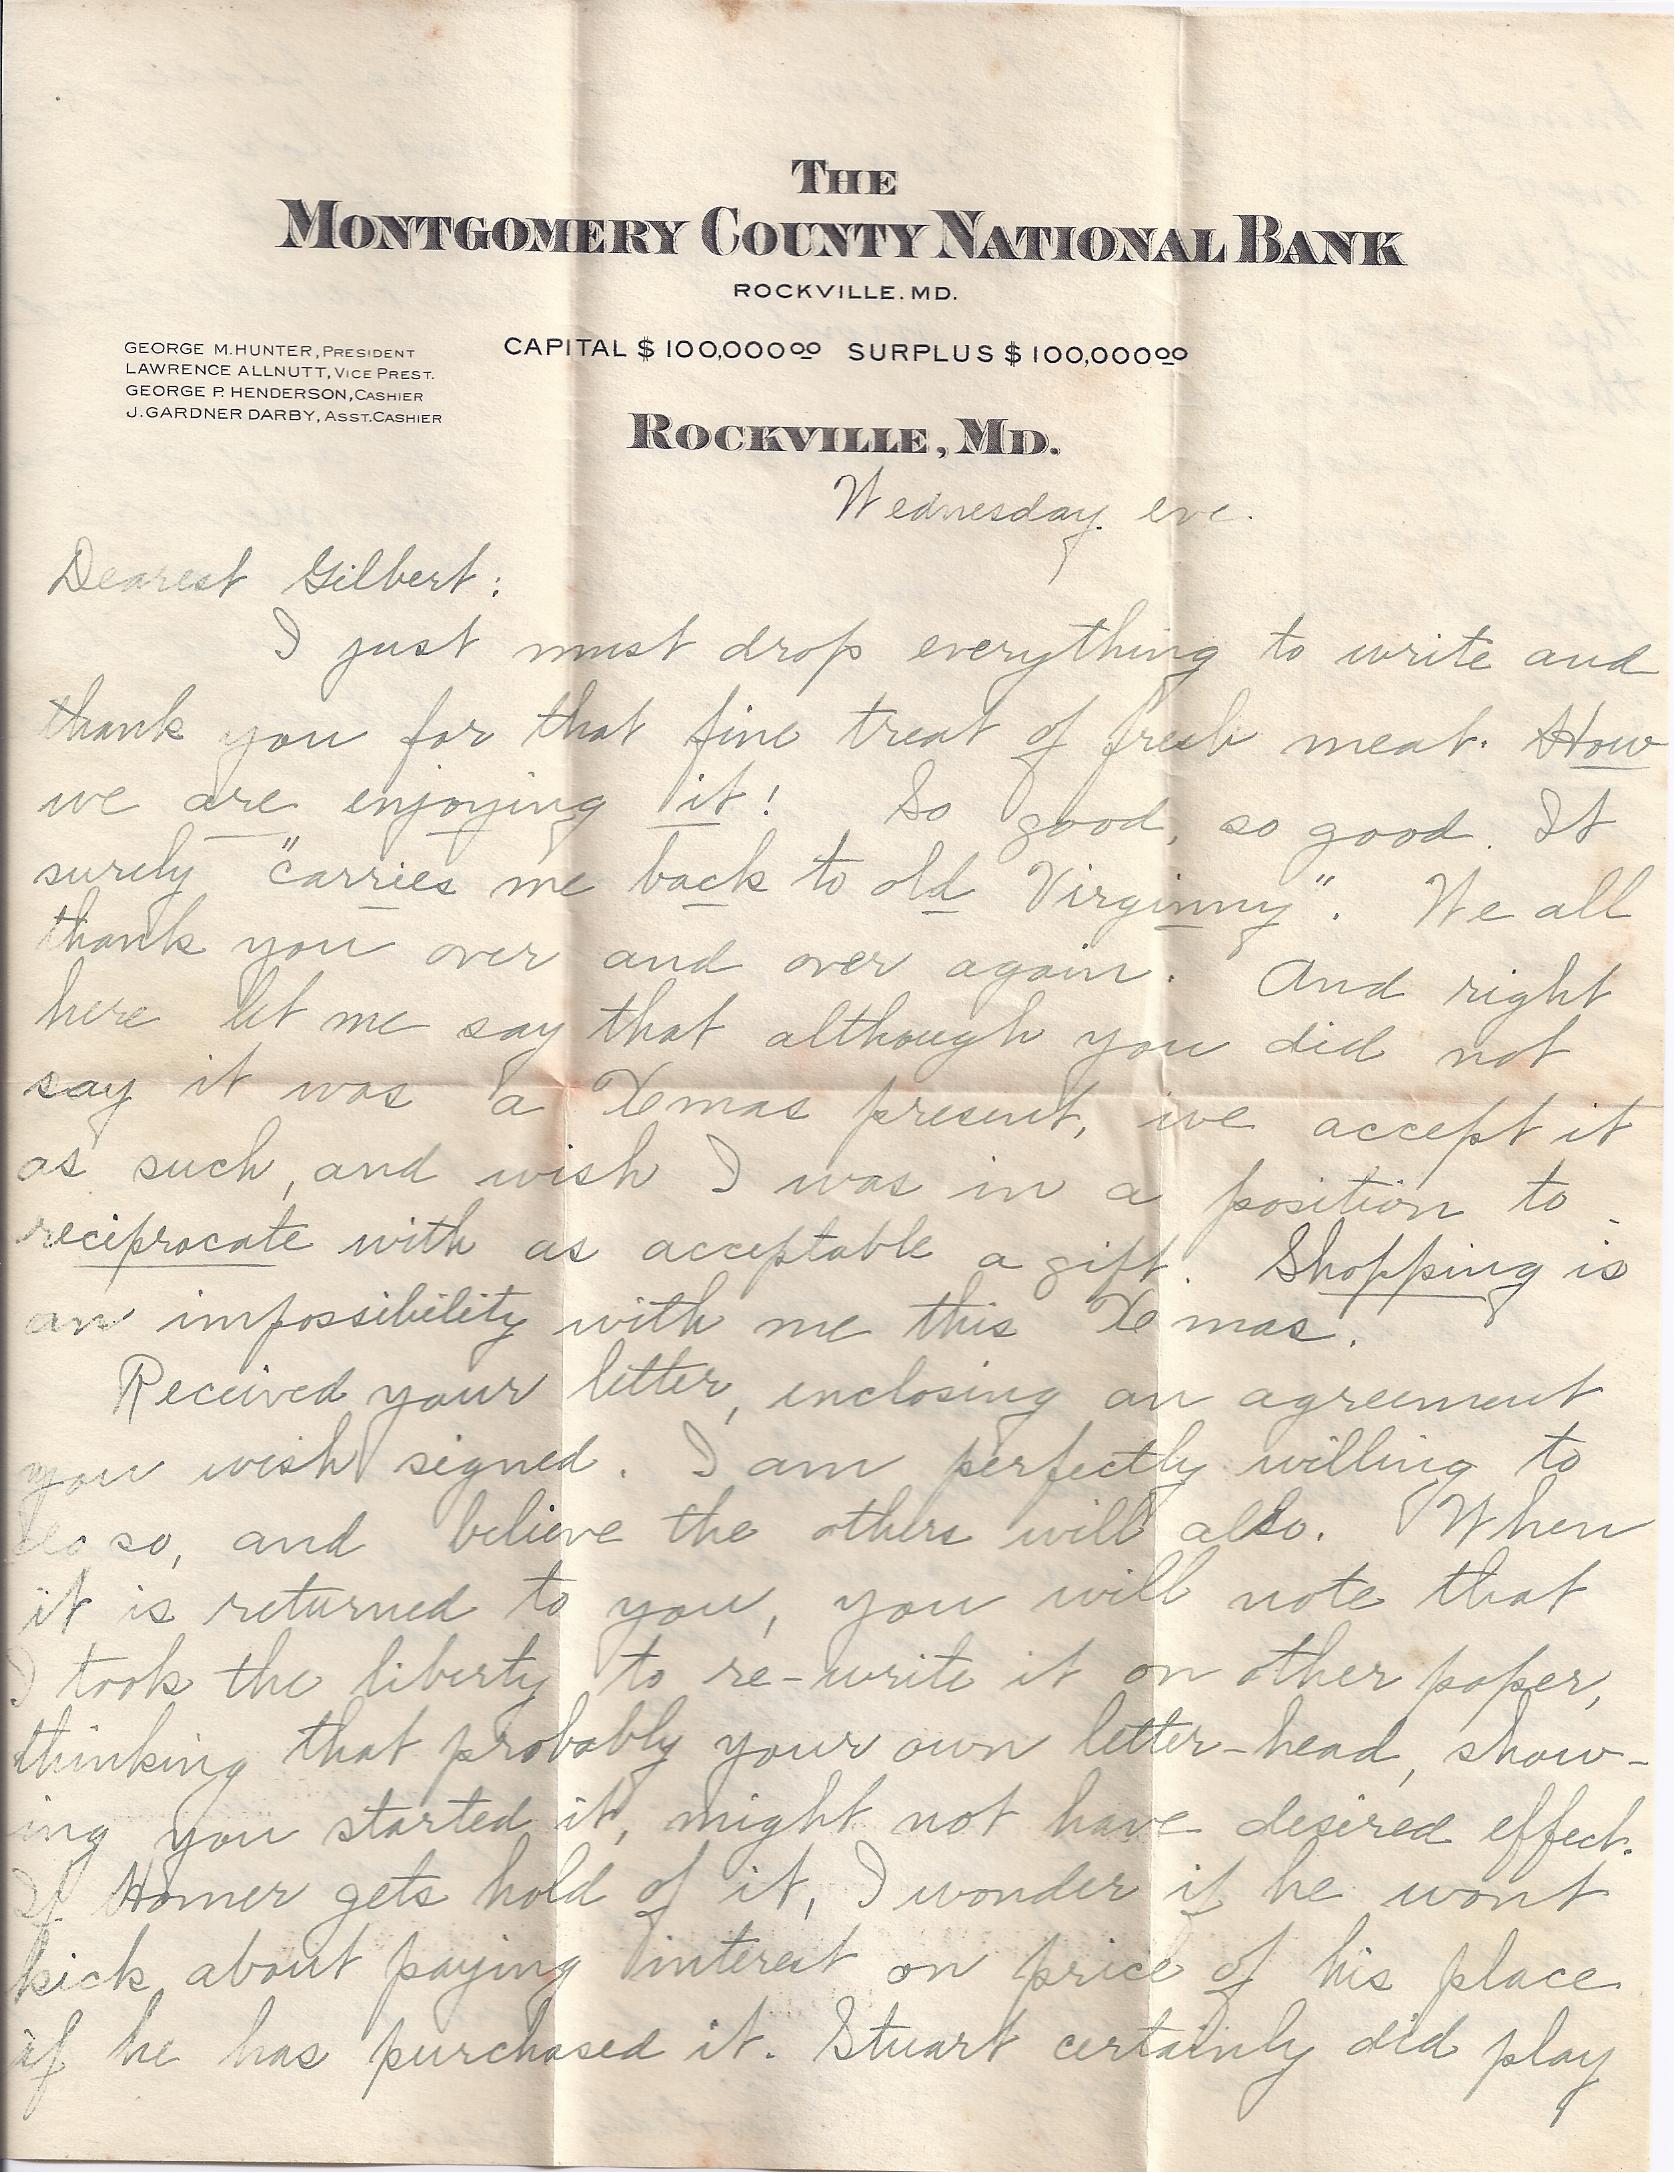 THE
MONTGOMERY COUNTY NATIONAL BANK
ROCKVILLE. MD.
CAPITAL $ 100,000 00 SURPLUS $ 100,000 00
GEORGE M. HUNTER, PRESIDENT
LAWRENCE ALLNUTT, VICE PREST.
GEORGE P. HENDERSON, CASHIER
J. GARDNER DARBY, ASST. CASHIER
ROCKVILLE, MD.
Wednesday eve.
Dearest Gilbert:
I just must drop everything to write and
thank you for that fine treat of fresh meat. How
we are enjoying it! So good, so good. It
surely "carries me back to old Virginny". We all
thank you over and over again. And right
here let me say that although you did not
say it was a Xmas present, we accept it
as such, and wish I was in a position to
reciprocate with as acceptable a gift. Shopping is
an impossibility with me this Xmas.
Received your letter, enclosing an agreement
you wish signed. I am perfectly willing to
do so, and believe the others will also. When
it is returned to you, you will note that
I took the liberty to re-write it on other paper,
thinking that probably your own letter-head, show-
ing you started it, might not have desired effect.
If Homer gets hold of it, I wonder if he wont
kick about paying interest on price of his place
if he has purchased it. Stuart certainly did play